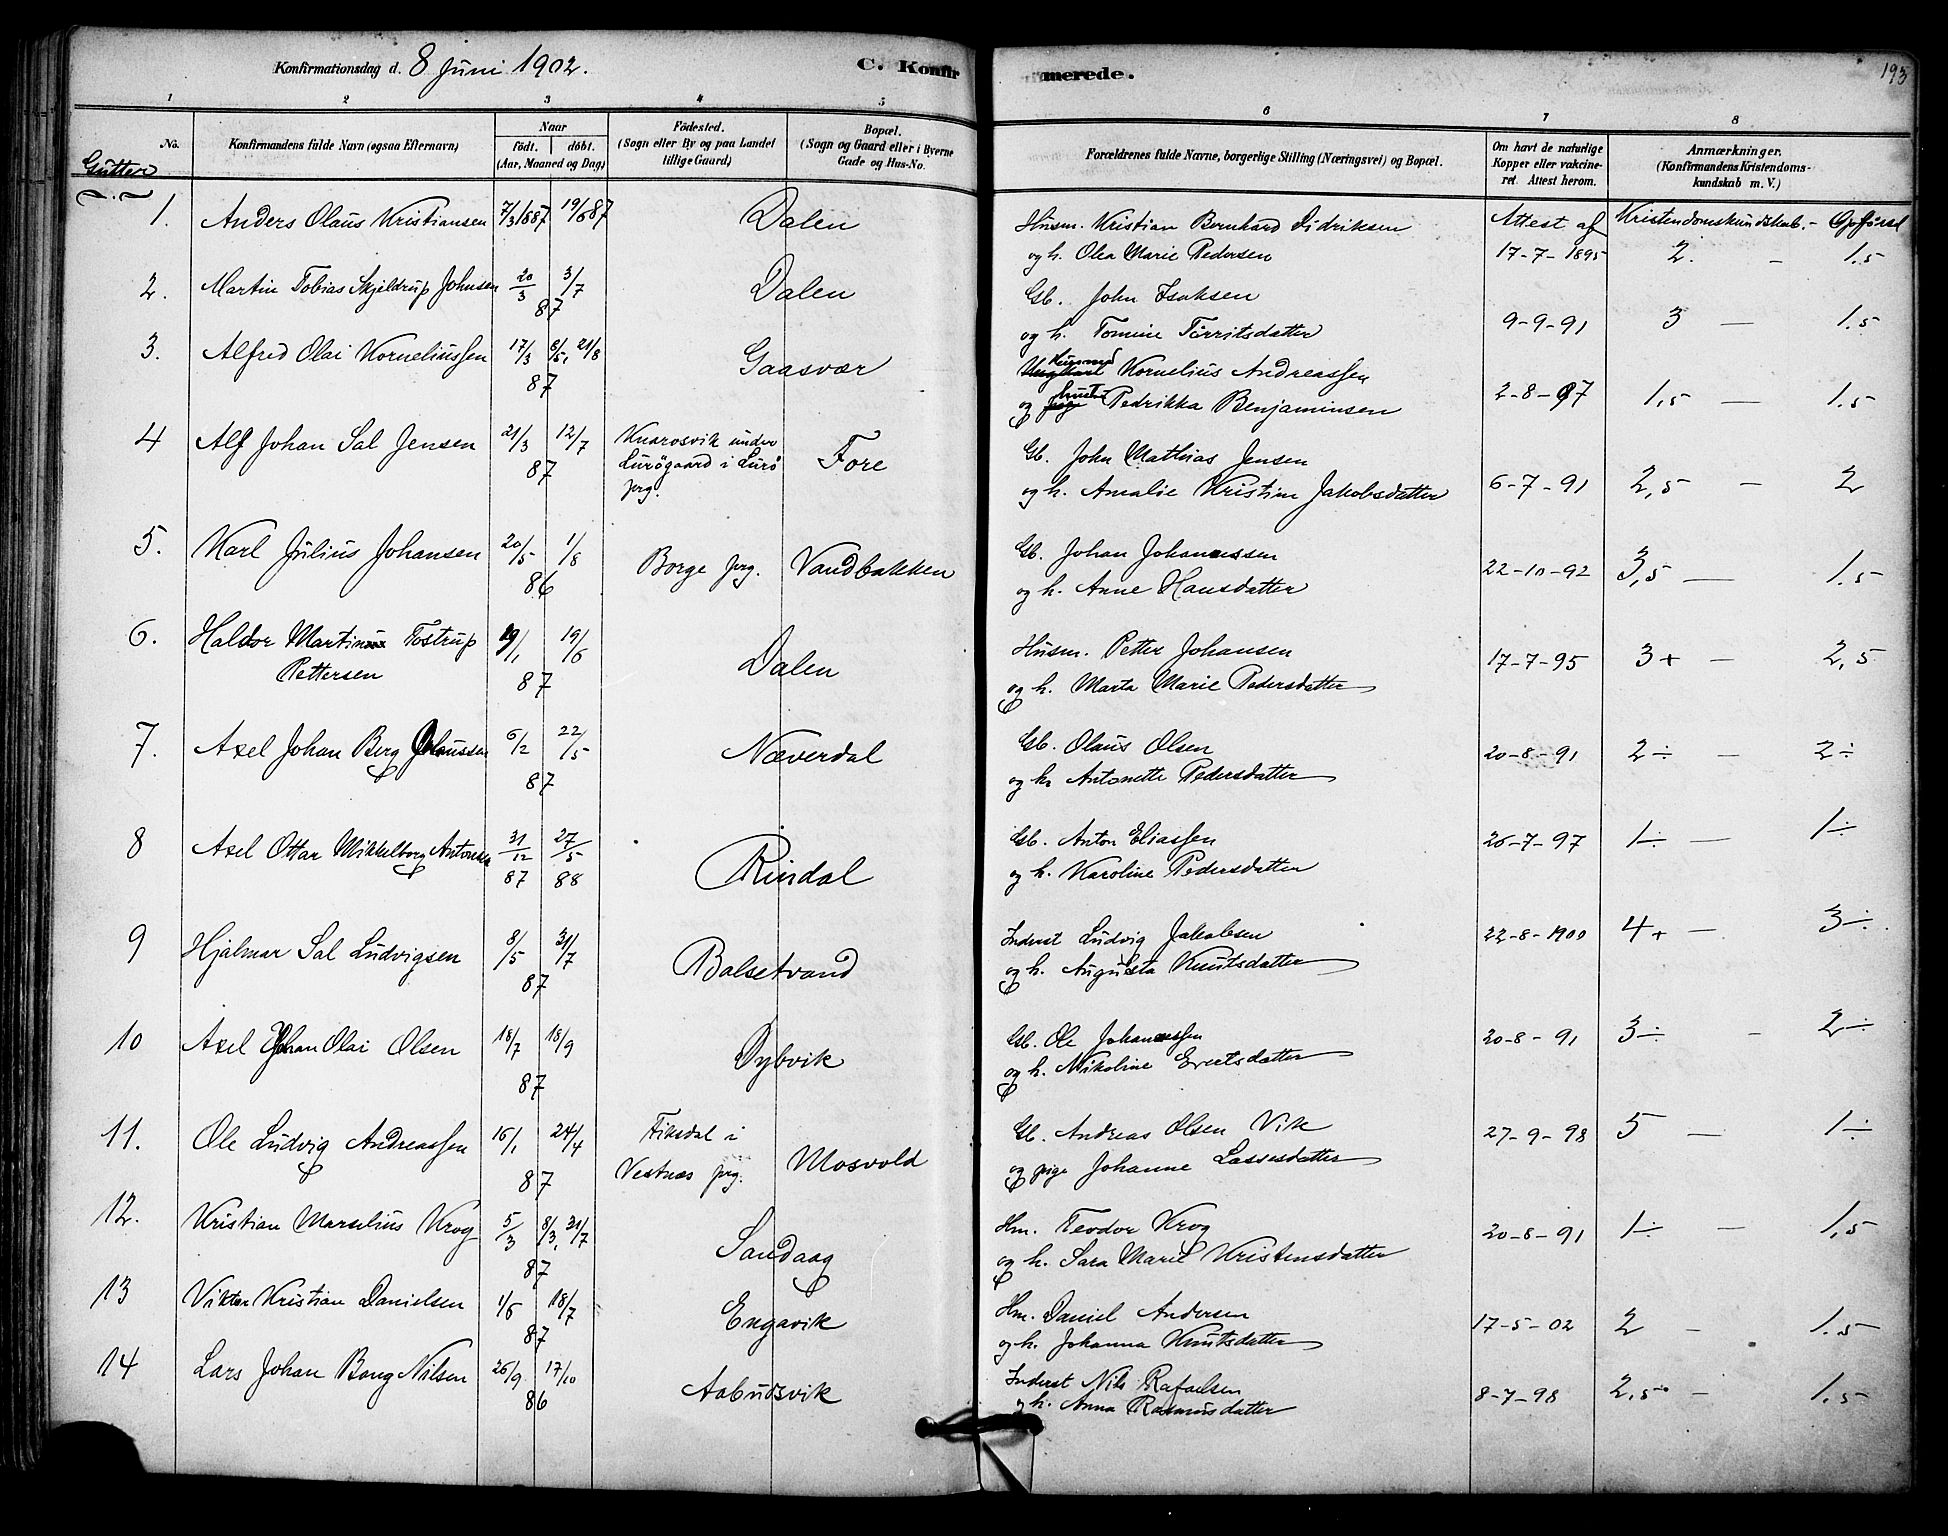 Konfirmationsdag d. 8 Juni 1902.
C. Konfirmerede.
193
1 2 3 4 5 6 7 8
No.
Konfirmandens fulde Navn (ogsaa Efternavn)
Naar
født. døbt.
(Aar, Maaned og Dag)
Fødested.
(Sogn eller By og paa Landet
tillige Gaard)
Bopæl.
(Sogn og Gaard eller i Byerne
Gade og Hus-No.
Forældrenes fulde Navne, borgerlige Stilling (Næringsvei) og Bopæl.
Om havt de naturlige
Kopper eller vakcine-
ret. Attest herom.
Anmærkninger.
(Konfirmandens Kristendoms-
kundskab m. V.)
Gutter
1. Anders Olaus Kristiansen 7/3 1887 19/6 87 Dalen Husm. Kristian Bernhard Didriksen Attest af Kristendomskundskab. - Opførsel
og h. Olea Marie Pedersen 17-7-1895 2. - 1.5
2. Martin Tobias Skjeldrup Johnsen 20/3 3/7 Dalen Gb. John Isaksen
87 og h. Tomine Tørritsdatter 9-9-91 3 - 1.5
3. Alfred Olai Korneliussen 17/3 8/5, 21/8 Gaasvær Husmd Kornelius Andreassen
87 og hustru Pedrikka Benjaminsen 2-8-97 1,5 - 1.5
4 Alf Johan Sal Jensen 21/3 12/7 Kvarosvik under Fore Gb. John Mathias Jensen
87 Lurøgaard i Lurø og h. Amalie Kristine Jakobsdatter 6-7-91 2,5 - 2
prg.
5. Karl Julius Johansen 20/5 1/8 Borge prg. Vandbakken Gb. Johan Johannessen
86 og h. Anne Hansdatter 22-10-92 3,5 - 1.5
6. Haldor Martinus Tostrup 19/1 19/6 Dalen Husm. Petter Johansen 17-7-95 3+ - 2,5
Pettersen 87 og h. Marta Marie Pedersdatter
7. Axel Johan Berg Olaussen 6/2 22/5 Næverdal Gb. Olaus Olsen 20-8-91 2÷ - 2÷
87 og h. Antonette Pedersdatter
8 Axel Ottar Mikkelborg Antonsen 31/12 27/5 Rindal Gb. Anton Eliassen 26-7-97 1÷ - 1÷
87 88 og h. Karoline Pedersdatter
9 Hjalmar Sal Ludvigsen 8/5 31/7 Balsetvand Inderst Ludvig Jakobsen 22-8-1900 4+ - 3÷
87 og h. Augusta Knutsdatter
10 Axel Johan Olai Olsen 18/7 18/9 Dybvik Gb. Ole Johannessen 20-8-91 3÷ - 2÷
87 og h. Nikoline Evertsdatter
11. Ole Ludvig Andreassen 16/1 24/4 Fiksdal i Mosvold Gb. Andreas Olsen Vik 27-9-98 5 - 1÷
87 Vestnæs prg. og pige Johanne Lassesdatter
12. Kristian Marselius Krog 5/3 8/3, 31/7 Sandaag Hm. Teodor Krog 20-8-91 1÷ - 1,5
87 og h. Sara Marie Kristensdatter
13 Viktor Kristian Danielsen 1/6 18/7 Engavik Hm. Daniel Andersen 17-5-02 2 - 1.5
87 og h. Johanna Knutsdatter
14 Lars Johan Bang Nilsen 26/9 17/10 Aabudsvik Inderst Nils Rafaelsen 8-7-98 2,5 - 1.5
86 og h. Anna Rasmusdatter